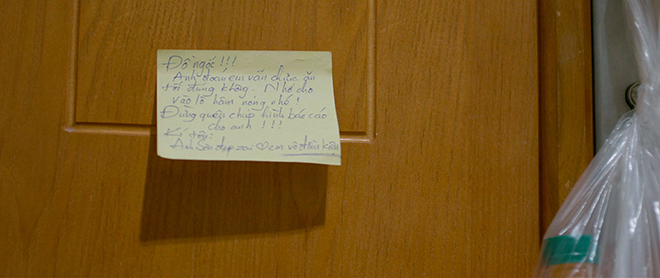 Đồ ngốc !!!
Anh đoán em vẫn chưa ăn
tối đúng không. Nhớ cho
vào lò hâm nóng nhé !
Đừng quên chụp hình báo cáo
cho anh !!!
Ký tên:
Anh Sếp đẹp zai ♡ em vô điều kiện